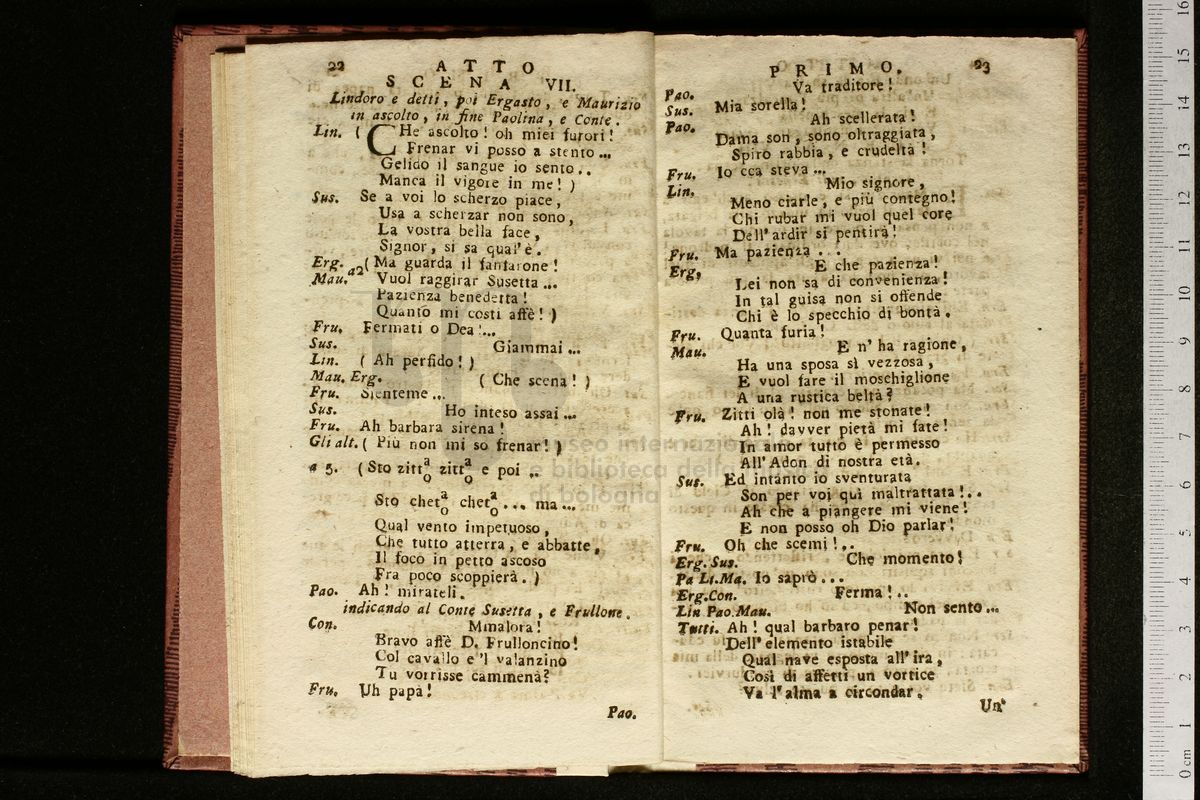 22 ATTO
SCENA VII.
Lindoro e detti, poi Ergasto, e Maurizio
in ascolto, in fine Paolina, e Conte.
Lin. ( CHe ascolto! oh miei furori!
Frenar vi posso a stento...
Gelido il sangue io sento..
Manca il vigore in me! )
Sus. Se a voi lo scherzo piace,
Usa a scherzar non sono,
La vostra bella face,
Signor, si sa qual'è.
Erg. a2 ( Ma guarda il fanfarone!
Mau. Vuol raggirar Susetta...
Pazienza benedetta!
Quanto mi costi affè! )
Fru. Fermati o Dea!...
Sus. Giammai...
Lin. ( Ah perfido! )
Mau. Erg. ( Che scena! )
Fru. Sienteme...
Sus. Ho inteso assai...
Fru. Ah barbara sirena!
Gli alt. ( Più non mi so frenar! )
a 5. ( Sto zitt a/o zitt a/o e poi..
Sto chet a/o chet a/o... ma...
Qual vento impetuoso,
Che tutto atterra, e abbatte,
Il foco in petto ascoso
Fra poco scoppierà. )
Pao. Ah! mirateli.
indicando al Conte Susetta, e Frullone.
Con. Mmalora!
Bravo affè D. Frulloncino!
Col cavallo e 'l valanzino
Tu vorrisse cammenà?
Fru. Uh papà!
Pao.
PRIMO. 23
Pao. Va traditore!
Sus. Mia sorella!
Pao. Ah scellerata!
Dama son, sono oltraggiata,
Spiro rabbia, e crudeltà!
Fru. Io cca steva...
Lin. Mio signore,
Meno ciarle, e più contegno!
Chi rubar mi vuol quel core
Dell' ardir si pentirà!
Fru. Ma pazienza...
Erg, E che pazienza!
Lei non sa di convenienza!
In tal guisa non si offende
Chi è lo specchio di bontà.
Fru. Quanta furia!
Mau. E n' ha ragione,
Ha una sposa sì vezzosa,
E vuol fare il moschiglione
A una rustica beltà?
Fru. Zitti olà! non me stonate!
Ah! davver pietà mi fate!
In amor tutto è permesso
All' Adon di nostra età.
Sus. Ed intanto io sventurata
Son per voi quì maltrattata!..
Ah che a piangere mi viene!
E non posso oh Dio parlar!
Fru. Oh che scemi!..
Erg. Sus. Che momento!
Pa Li. Ma. Io saprò...
Erg. Con. Ferma!..
Lin Pao. Mau. Non sento...
Tutti. Ah! qual barbaro penar!
Dell' elemento istabile
Qual nave esposta all' ira,
Così di affetti un vortice
Va l' alma a circondar.
Un'
museo internazionale
e biblioteca della musica
di bologna
0 cm 1 2 3 4 5 6 7 8 9 10 11 12 13 14 15 16